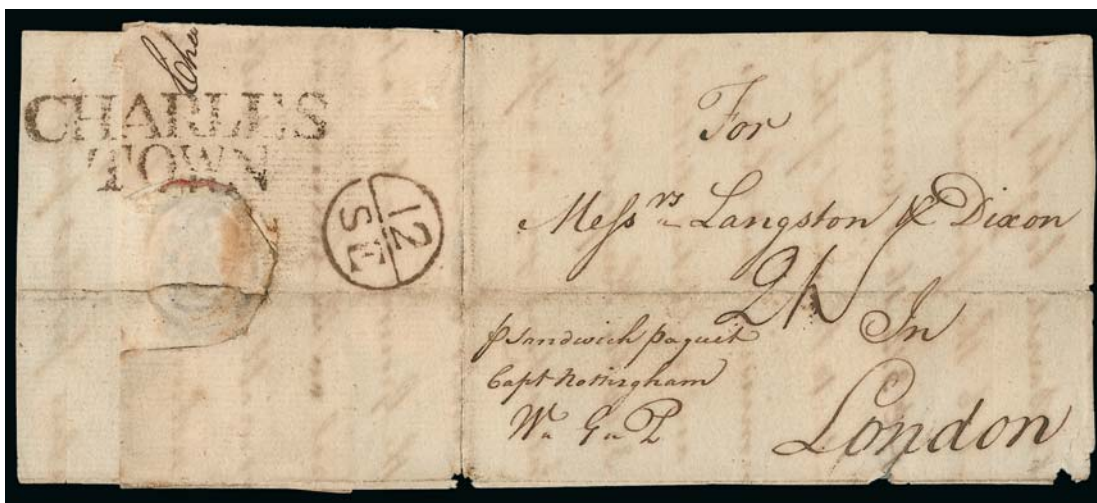 Cha
CHARLES
TOWN
12
SE
For
Messrs Langston & Dixon
2/
In
p Sandwich paquit
Capt Nottingham
W G P
London